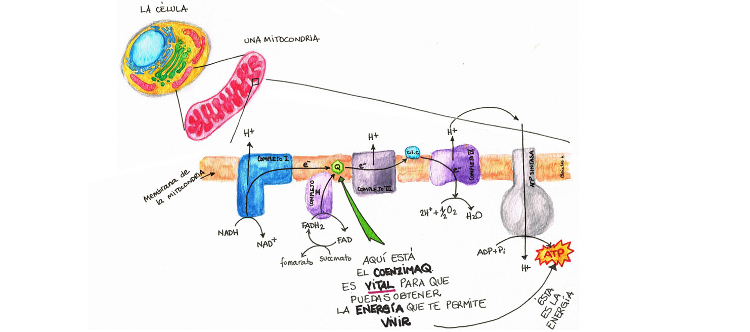 LA CÉLULA
UNA MITOCONDRIA
Membrana de
la MITOCONDRIA
H+
COMPLEJO I
e-
NADH
NAD+
Q
COMPLEJO II
FADH2
FAD
fomarato
succinato
H+
e-
COMPLEJO III
cit.c
H+
e-
COMPLEJO IV
2H+ + ½O2
H2O
ATP SINTASA
ADP+Pi
H+
ATP
ÉSTA
ES LA
ENERGÍA
AQUÍ ESTÁ
EL COENZIMAQ
ES VITAL PARA QUE
PUEDAS OBTENER
LA ENERGÍA QUE TE PERMITE
VIVIR